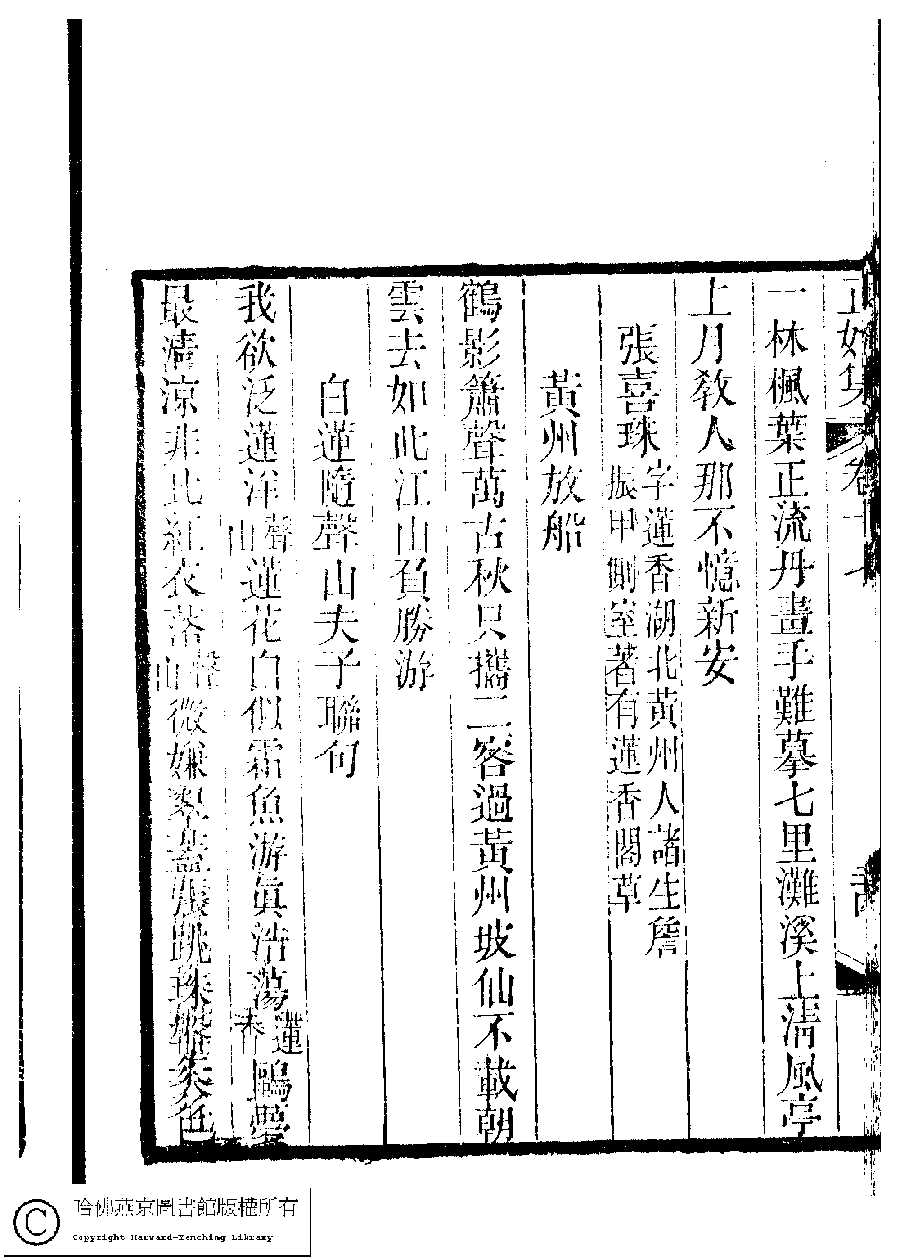 正始集 卷十七
一林楓葉正流丹畫手難摹七里灘溪上清風亭
上月教人那不憶新安
張喜珠
字蓮香湖北黃州人諸生詹
振甲側室著有蓮香閣草
黃州放船
鶴影簫聲萬古秋只攜二客過黃州坡仙不載朝
雲去如此江山負勝游
白蓮隨聲山夫子聯句
我欲泛蓮洋聲山蓮花白似霜魚游真浩蕩蓮香鷗夢
最清涼非比紅衣落聲山微嫌翠蓋張跳珠盤色
哈佛燕京圖書館版權所有
Copyright Harvard-Yenching Library